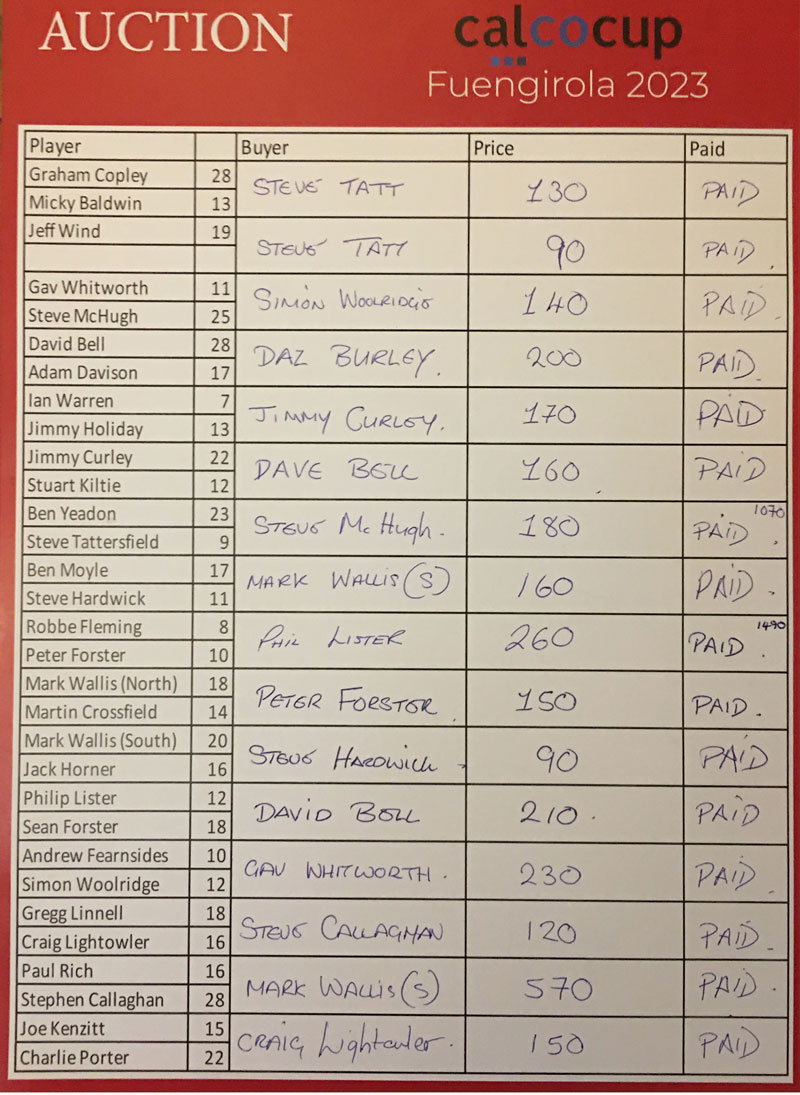 AUCTION
calcocup
Fuengirola 2023
Player Buyer Price Paid
Graham Copley 28 STEVE TATT 130 PAID
Micky Baldwin 13
Jeff Wind 19 STEVE TATT 90 PAID
Gav Whitworth 11 SIMON WOOLRIDGE 140 PAID
Steve McHugh 25
David Bell 28 DAZ BURLEY. 200 PAID
Adam Davison 17
Ian Warren 7 JIMMY CURLEY. 170 PAID
Jimmy Holiday 13
Jimmy Curley 22 DAVE BELL 160 PAID
Stuart Kiltie 12
Ben Yeadon 23 STEVE McHugh. 180 PAID 1070
Steve Tattersfield 9
Ben Moyle 17 MARK WALLIS(S) 160 PAID.
Steve Hardwick 11
Robbe Fleming 8 PHIL LISTER 260 PAID. 1490
Peter Forster 10
Mark Wallis (North) 18 PETER FORSTER. 150 PAID.
Martin Crossfield 14
Mark Wallis (South) 20 STEVE HARDWICK. 90 PAID
Jack Horner 16
Philip Lister 12 DAVID BELL 210. PAID
Sean Forster 18
Andrew Fearnsides 10 GAV WHITWORTH. 230 PAID.
Simon Woolridge 12
Gregg Linnell 18 STEVE CALLAGHAN 120 PAID.
Craig Lightowler 16
Paul Rich 16 MARK WALLIS(S) 570 PAID.
Stephen Callaghan 28
Joe Kenzitt 15 CRAIG Lightowler. 150 PAID
Charlie Porter 22